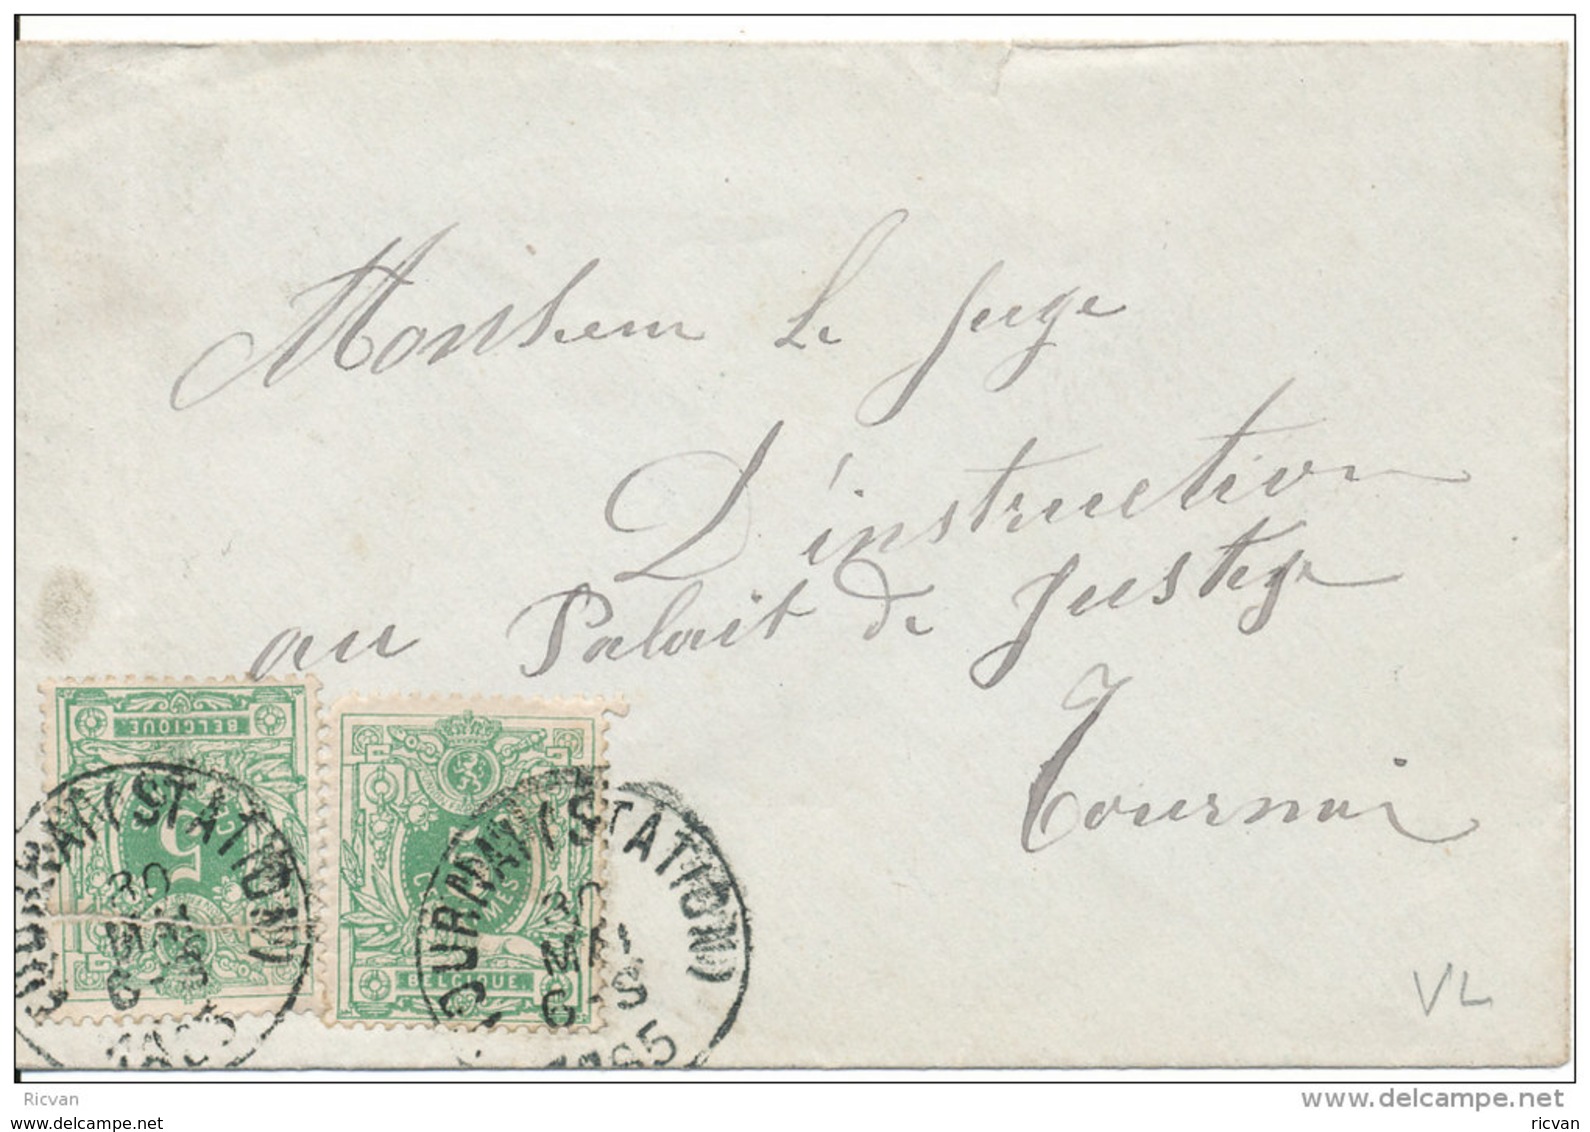 Monsieur Le Juge
D'instruction
au Palait de Justice
Tournai
BELGIQUE
5
BELGIQUE
TOURNAY (STATION)
30
MAI
6-S
1885
TOURNAY (STATION)
30
MAI
6-S
1885
VL
Ricvan
www.delcampe.net
www.delcampe.net
ricvan